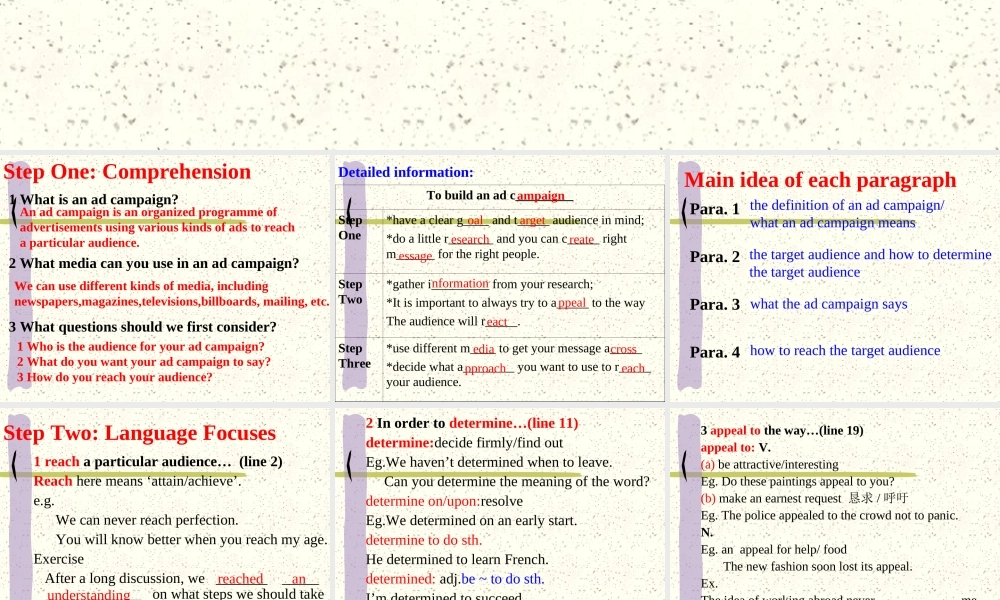 Step One: Comprehension
1 What is an ad campaign?
An ad campaign is an organized programme of
advertisements using various kinds of ads to reach
a particular audience.
2 What media can you use in an ad campaign?
We can use different kinds of media, including
newspapers,magazines,televisions,billboards, mailing, etc.
3 What questions should we first consider?
1 Who is the audience for your ad campaign?
2 What do you want your ad campaign to say?
3 How do you reach your audience?
Detailed information:
To build an ad campaign
Step One
*have a clear goal and target audience in mind;
*do a little research and you can create right
message for the right people.
Step Two
*gather information from your research;
*It is important to always try to appeal to the way
The audience will react.
Step Three
*use different media to get your message across
*decide what approach you want to use to reach
your audience.
Main idea of each paragraph
Para. 1 the definition of an ad campaign/
what an ad campaign means
Para. 2 the target audience and how to determine
the target audience
Para. 3 what the ad campaign says
Para. 4 how to reach the target audience
Step Two: Language Focuses
1 reach a particular audience… (line 2)
Reach here means ‘attain/achieve’.
e.g.
We can never reach perfection.
You will know better when you reach my age.
Exercise
After a long discussion, we reached an
understanding on what steps we should take
2 In order to determine…(line 11)
determine:decide firmly/find out
Eg.We haven’t determined when to leave.
Can you determine the meaning of the word?
determine on/upon:resolve
Eg.We determined on an early start.
determine to do sth.
He determined to learn French.
determined: adj.be ~ to do sth.
I’m determined to succeed
3 appeal to the way…(line 19)
appeal to: V.
(a) be attractive/interesting
Eg. Do these paintings appeal to you?
(b) make an earnest request 恳求 / 呼吁
Eg. The police appealed to the crowd not to panic.
N.
Eg. an appeal for help/ food
The new fashion soon lost its appeal.
Ex.
The idea of working abroad never me